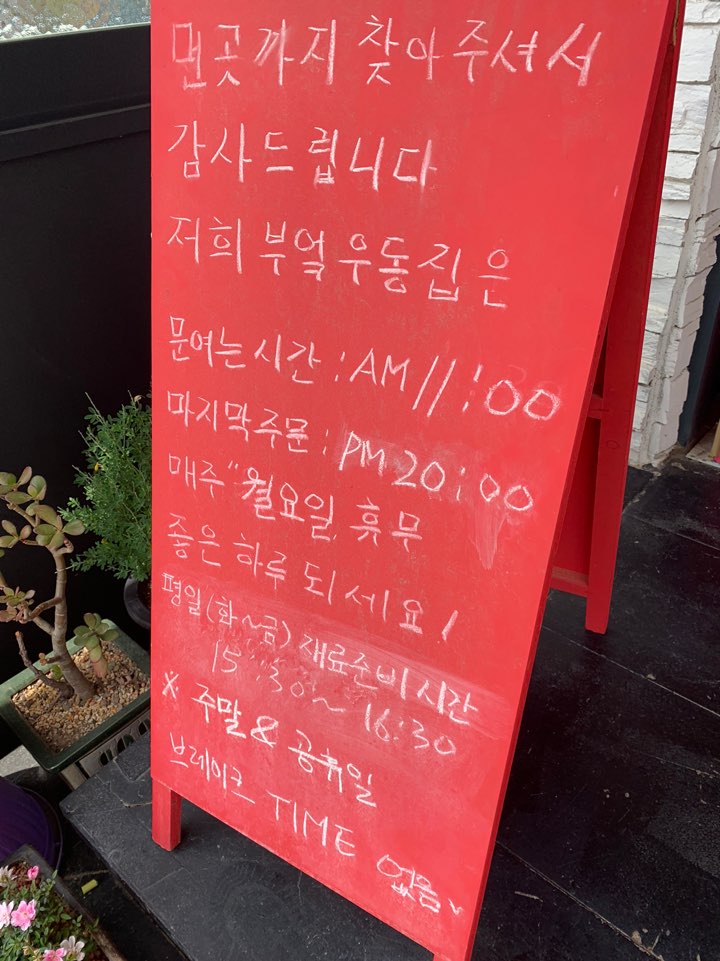 먼곳까지 찾아주셔서
감사드립니다
저희 부엌우동집은
문여는시간 : AM 11:00
마지막주문 : PM 20:00
매주 "월요일 휴무
좋은 하루 되세요!
평일(화~금) 재료준비시간
15:30~16:30
※ 주말 & 공휴일
브레이크 TIME 없음